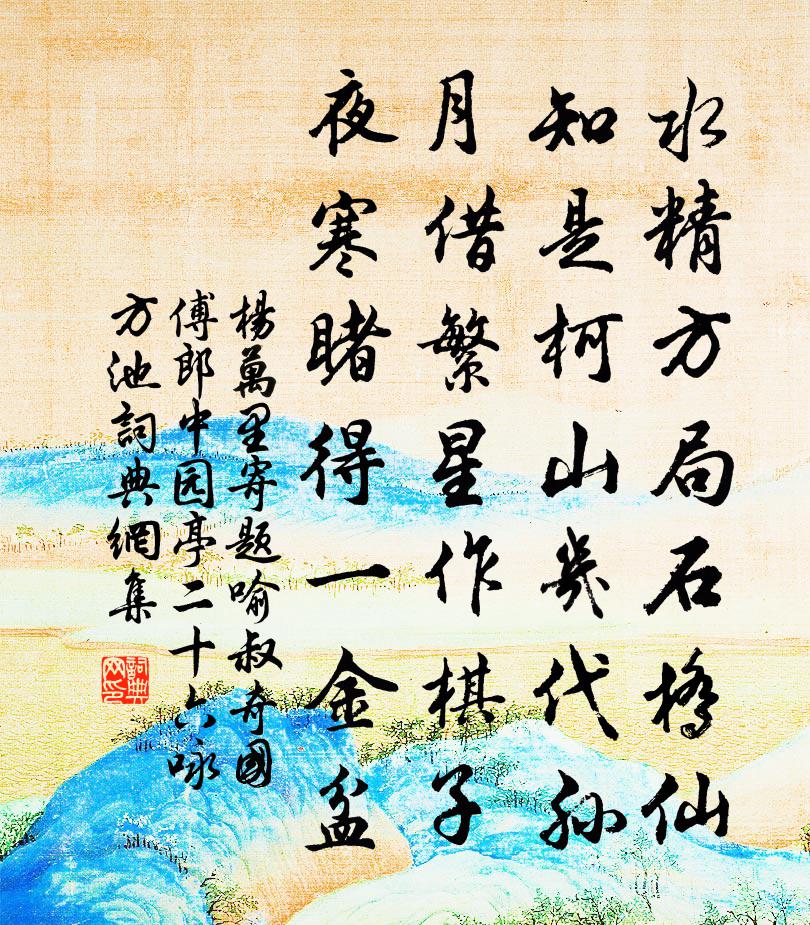 水精方局石橋仙
知是柯山幾代孙
月借繁星作棋子
夜寒睹得一金盆
楊萬里寄題喻叔奇國
傅郎中园亭二十六咏
方池詞典網集
詞典网印